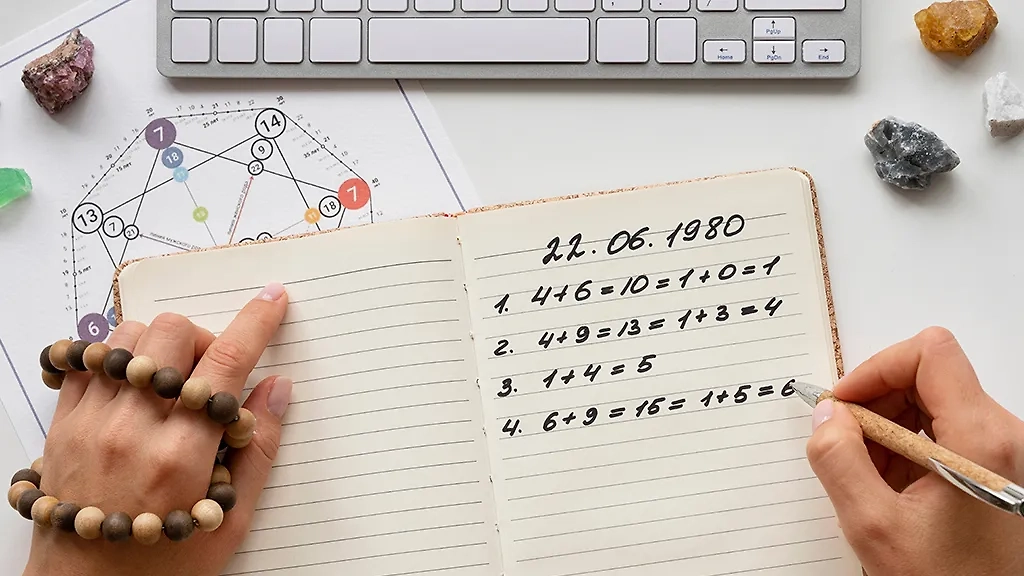 PgUp
Home
PgDn
End
7
14
18
9
22
7
18
13
7
21
6
22.06.1980
1. 4+6=10=1+0=1
2. 4+9=13=1+3=4
3. 1+4=5
4. 6+9=15=1+5=6